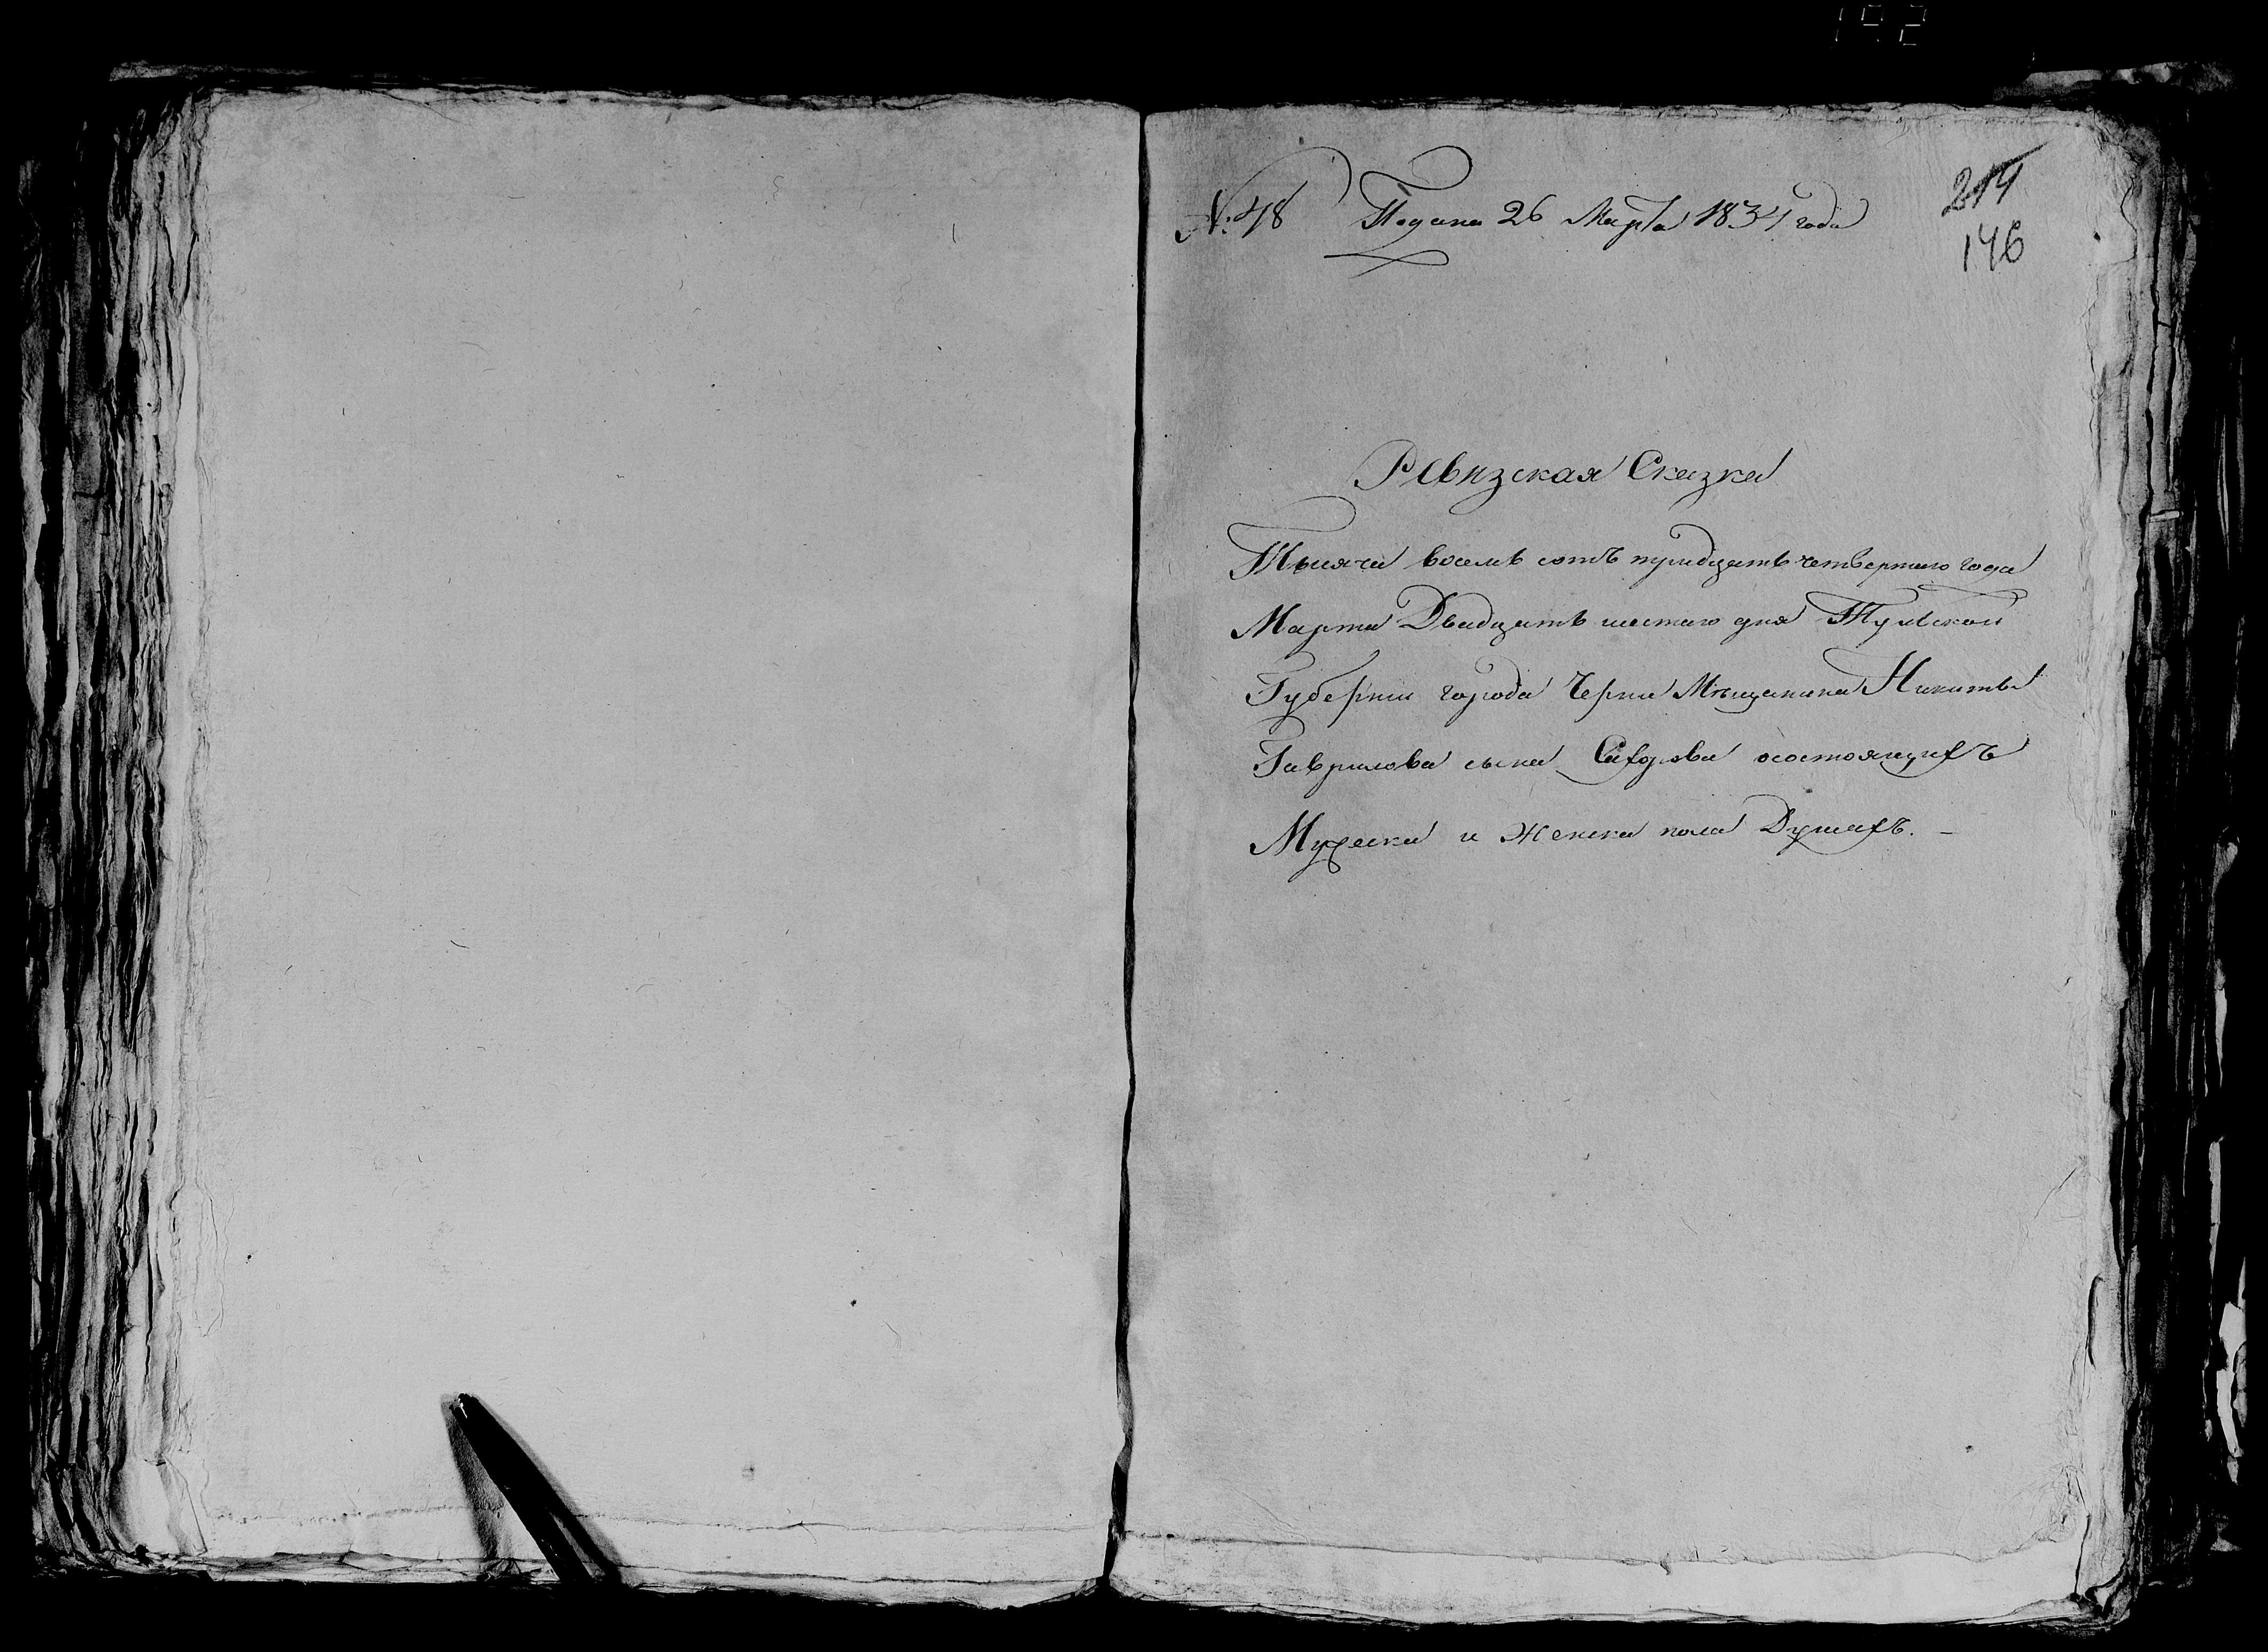 192
214
№ 48 Подана 26 Марта 1834 года
146
Ревизская Сказка
Тысяча восемь сотъ тридцать четвертаго года
Марта Двадцать шестаго дня Тульской
Губернии города Черни Мещанина Никиты
Гаврилова сына осостоящихъ
Мужеска и Женска пола Душахъ.